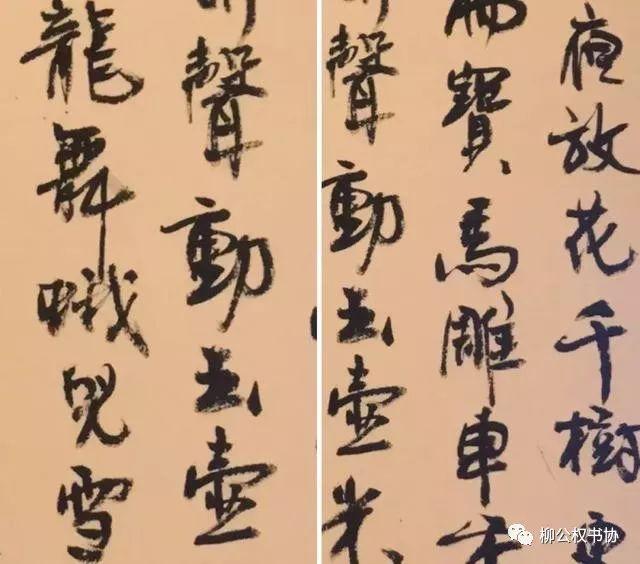 聲動玉壺
龍舞蛾兒雪
夜放花千樹
寶馬雕車
聲動玉壺光
柳公权书协